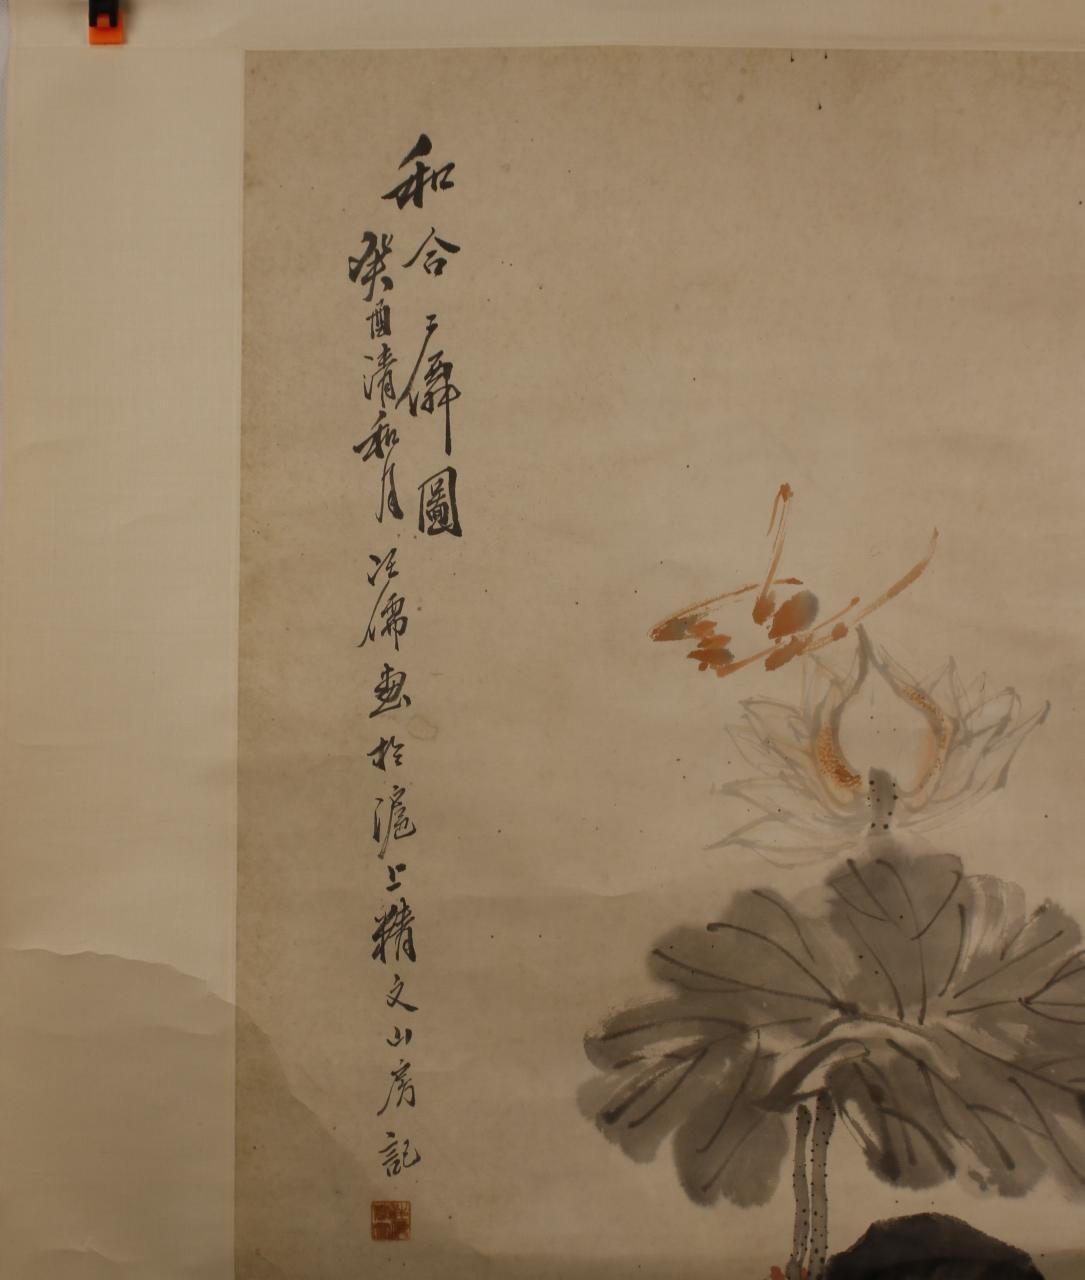 和合二僊圖
癸酉清和月泛儒畫於滬上精文山房記